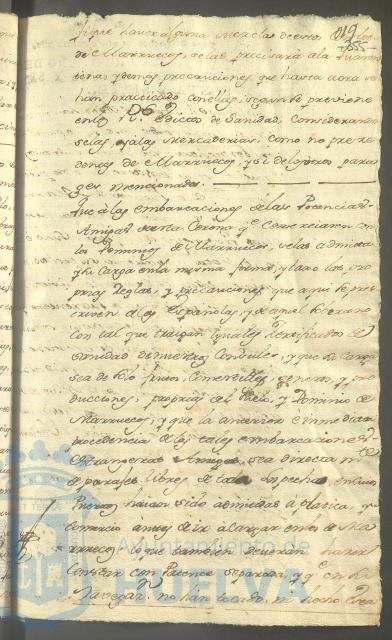 019
555
ni que haver alguna mezcla de estos con los
de Marruecos, se las precisará a la Quaren-
tena, y demas precauciones que hasta aora se
han practicado con ellas, segun se previene
en los Rs. Edictos de Sanidad, considerando-
se las Mercaderias, como no proce-
dentes de Marruecos, y si de otros para-
ges mencionados.
Que à las embarcaciones de las Potencias
Amigas de esta Corona qe. comerciaren en
los Dominios de Marruecos, se las admita
y su Carga en la misma forma, y bajo las pro-
prias Reglas, y precauciones que aqui se pres-
criven à los Españoles, y
con tal que traigan iguales Certificados de
Sanidad de nuestros Consules, y que su Carga
sea de solo frutos, comestibles, generos, y pro-
ducciones, proprias del Pais, y Dominio de
Marruecos, y que la anterior e inmediata
procedencia de las tales embarcaciones
estrangeras Amigas, sea directa mte.
de parages libres de toda sospecha, en cuios
Puertos hayan sido admitidas à platica, y
comercio antes de ir a cargar en los de Ma-
rruecos, lo que tambien deveràn hacer
constar con Patente separada, y qe. en su
Navegazn. no han tocado, ni hecho
Ayuntamiento de
HUELVA